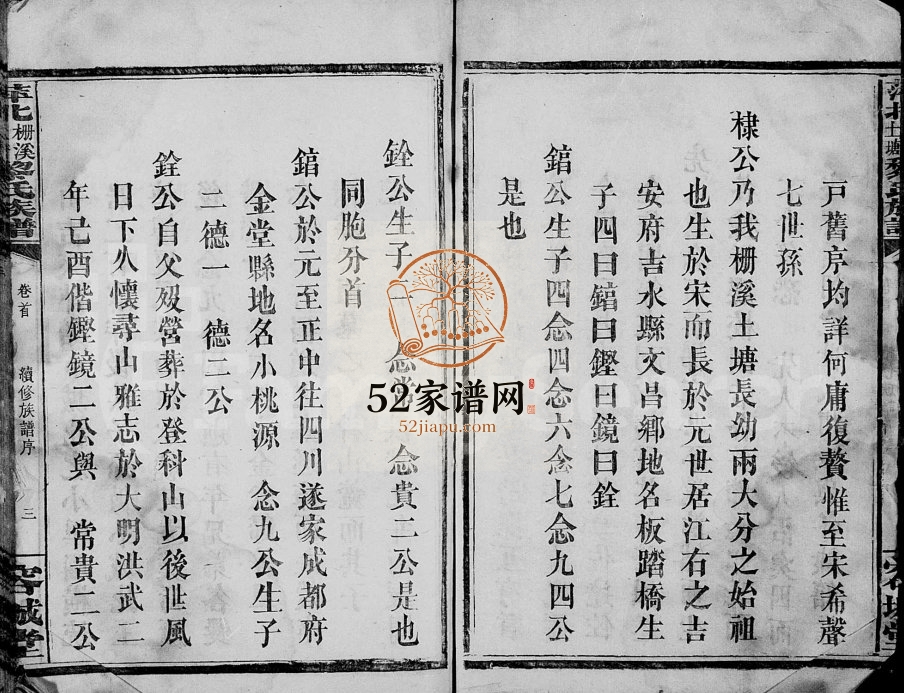 萍北土塘黎氏族譜
戸舊序均詳何庸復贅惟至宋希聲
七世孫
棣公乃我栅溪土塘長幼兩大分之始祖
也生於宋而長於元世居江右之吉
安府吉水縣文昌鄉地名板踏橋生
子四曰錧曰鏗曰鏡曰銓
錧公生子四念四念六念七念九四公
是也
銓公生子二念常念貴二公是也
同胞分首
錧公於元至正中往四川遂家成都府
金堂縣地名小桃源 念九公生子
二德一 德二公
銓公自父歿營葬於登科山以後世風
日下久懷尋山雅志於大明洪武二
年己酉偕鏗鏡二公與 常貴二公
萍北栅溪黎氏族譜
卷首
續修族譜序
三
52家谱网
52jiapu.com